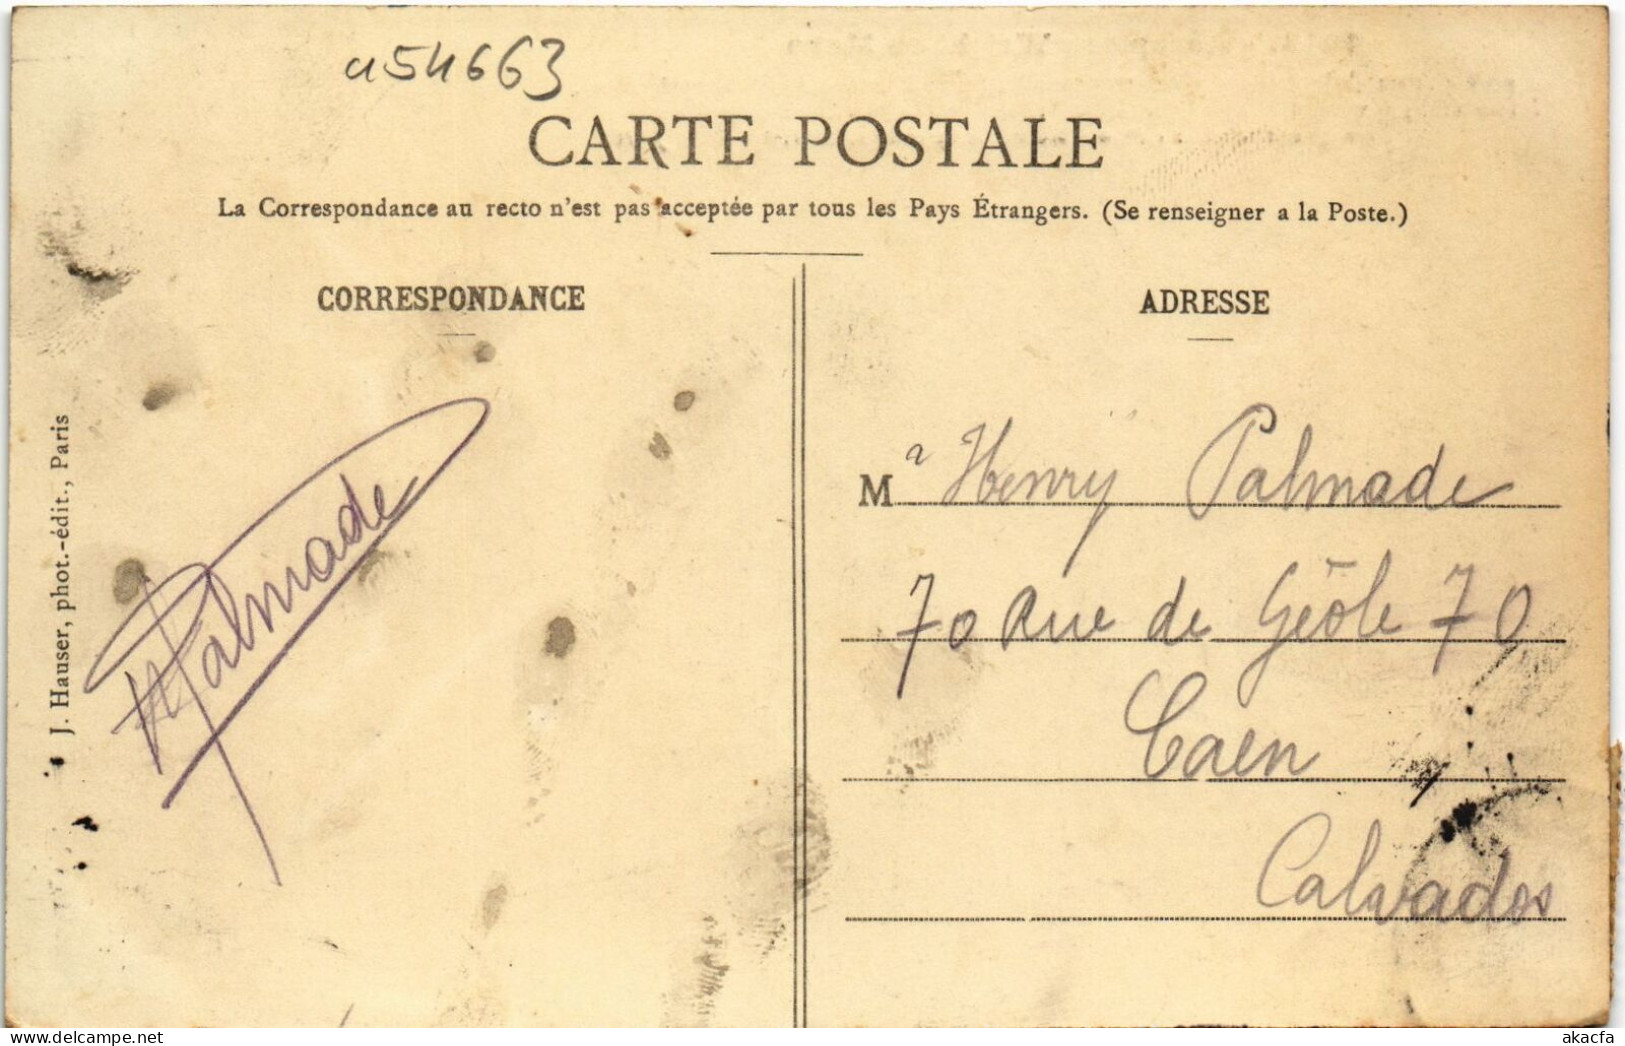 a54663
CARTE POSTALE
La Correspondance au recto n'est pas acceptée par tous les Pays Étrangers. (Se renseigner a la Poste.)
CORRESPONDANCE
J. Hauser, phot.-édit., Paris
H Palmade
ADRESSE
M a Henry Palmade
70 Rue de Geôle 70
Caen
Calvados
akacfa